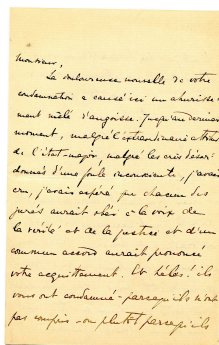 Monsieur,
La douloureuse nouvelle de votre
condamnation a causé ici un ahurisse-
ment mêlé d'angoisse. Jusqu'au dernier
moment, malgré l'extraordinaire attitude
de l'état-major, malgré les cris désor-
donnés d'une foule inconsciente, j'avais
cru, j'avais espéré que chacun des
jurés aurait obéi à la voix de
la vérité et de la justice et d'un
commun accord aurait prononcé
votre acquittement. Et hélas! ils
vous ont condamné - parcequ'ils n'ont
pas compris - ou plutôt parcequ'ils